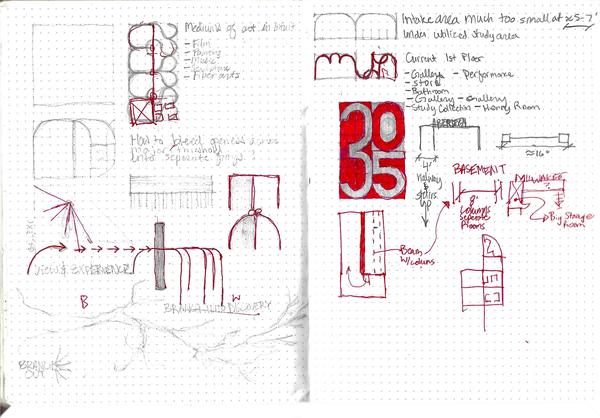 Mediums of art in Intuit
- Film
- Painting
- Music
- Sculpture
- Fiber arts
How to breed openness across
major threshold
into separate
VIEW & EXPERIENCE
B
W
BRANCH INTO DISCOVERY
BRANCH
OUT
Intake area much too small at ≈5-7'
Under utilized study area
Current 1st Floor
- Gallery - Performance
- Store
- Bathroom
- Gallery - Gallery
- Study Collection - Henry Room
30
35
4'
hallway
& stairs
up
≈16"
BASEMENT
8"
Columns
separate
Rooms
Big Storage
room
Beam
w/ colums